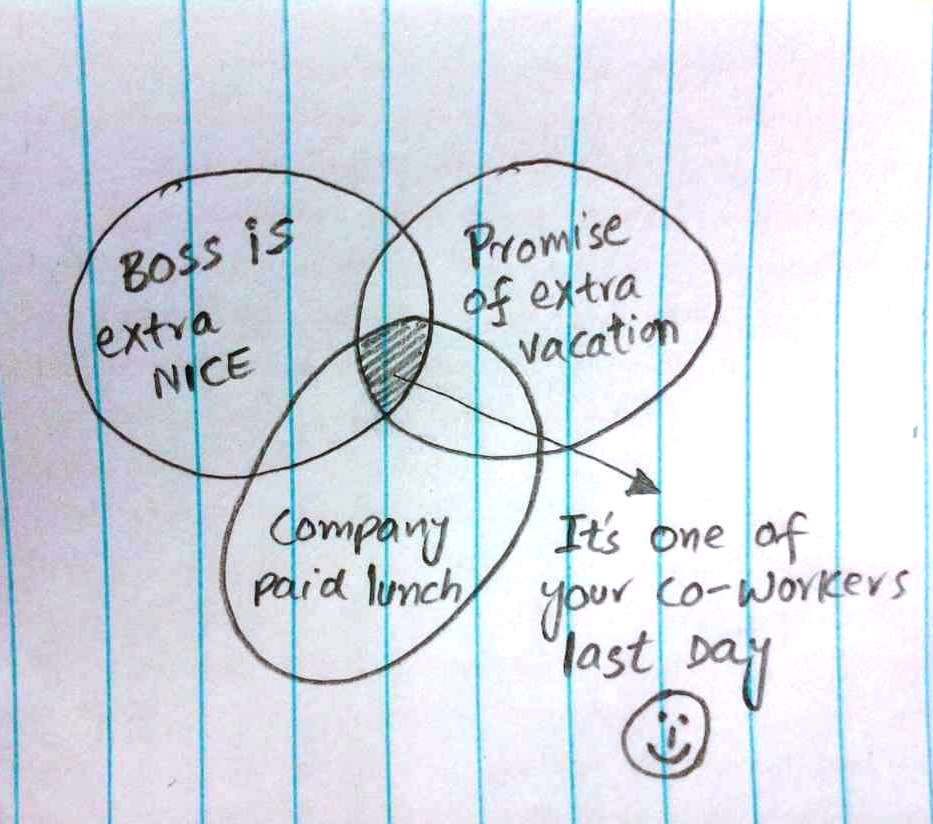 Boss is
extra
NICE
Promise
of extra
vacation
Company
paid lunch
It's one of
your co-workers
last Day